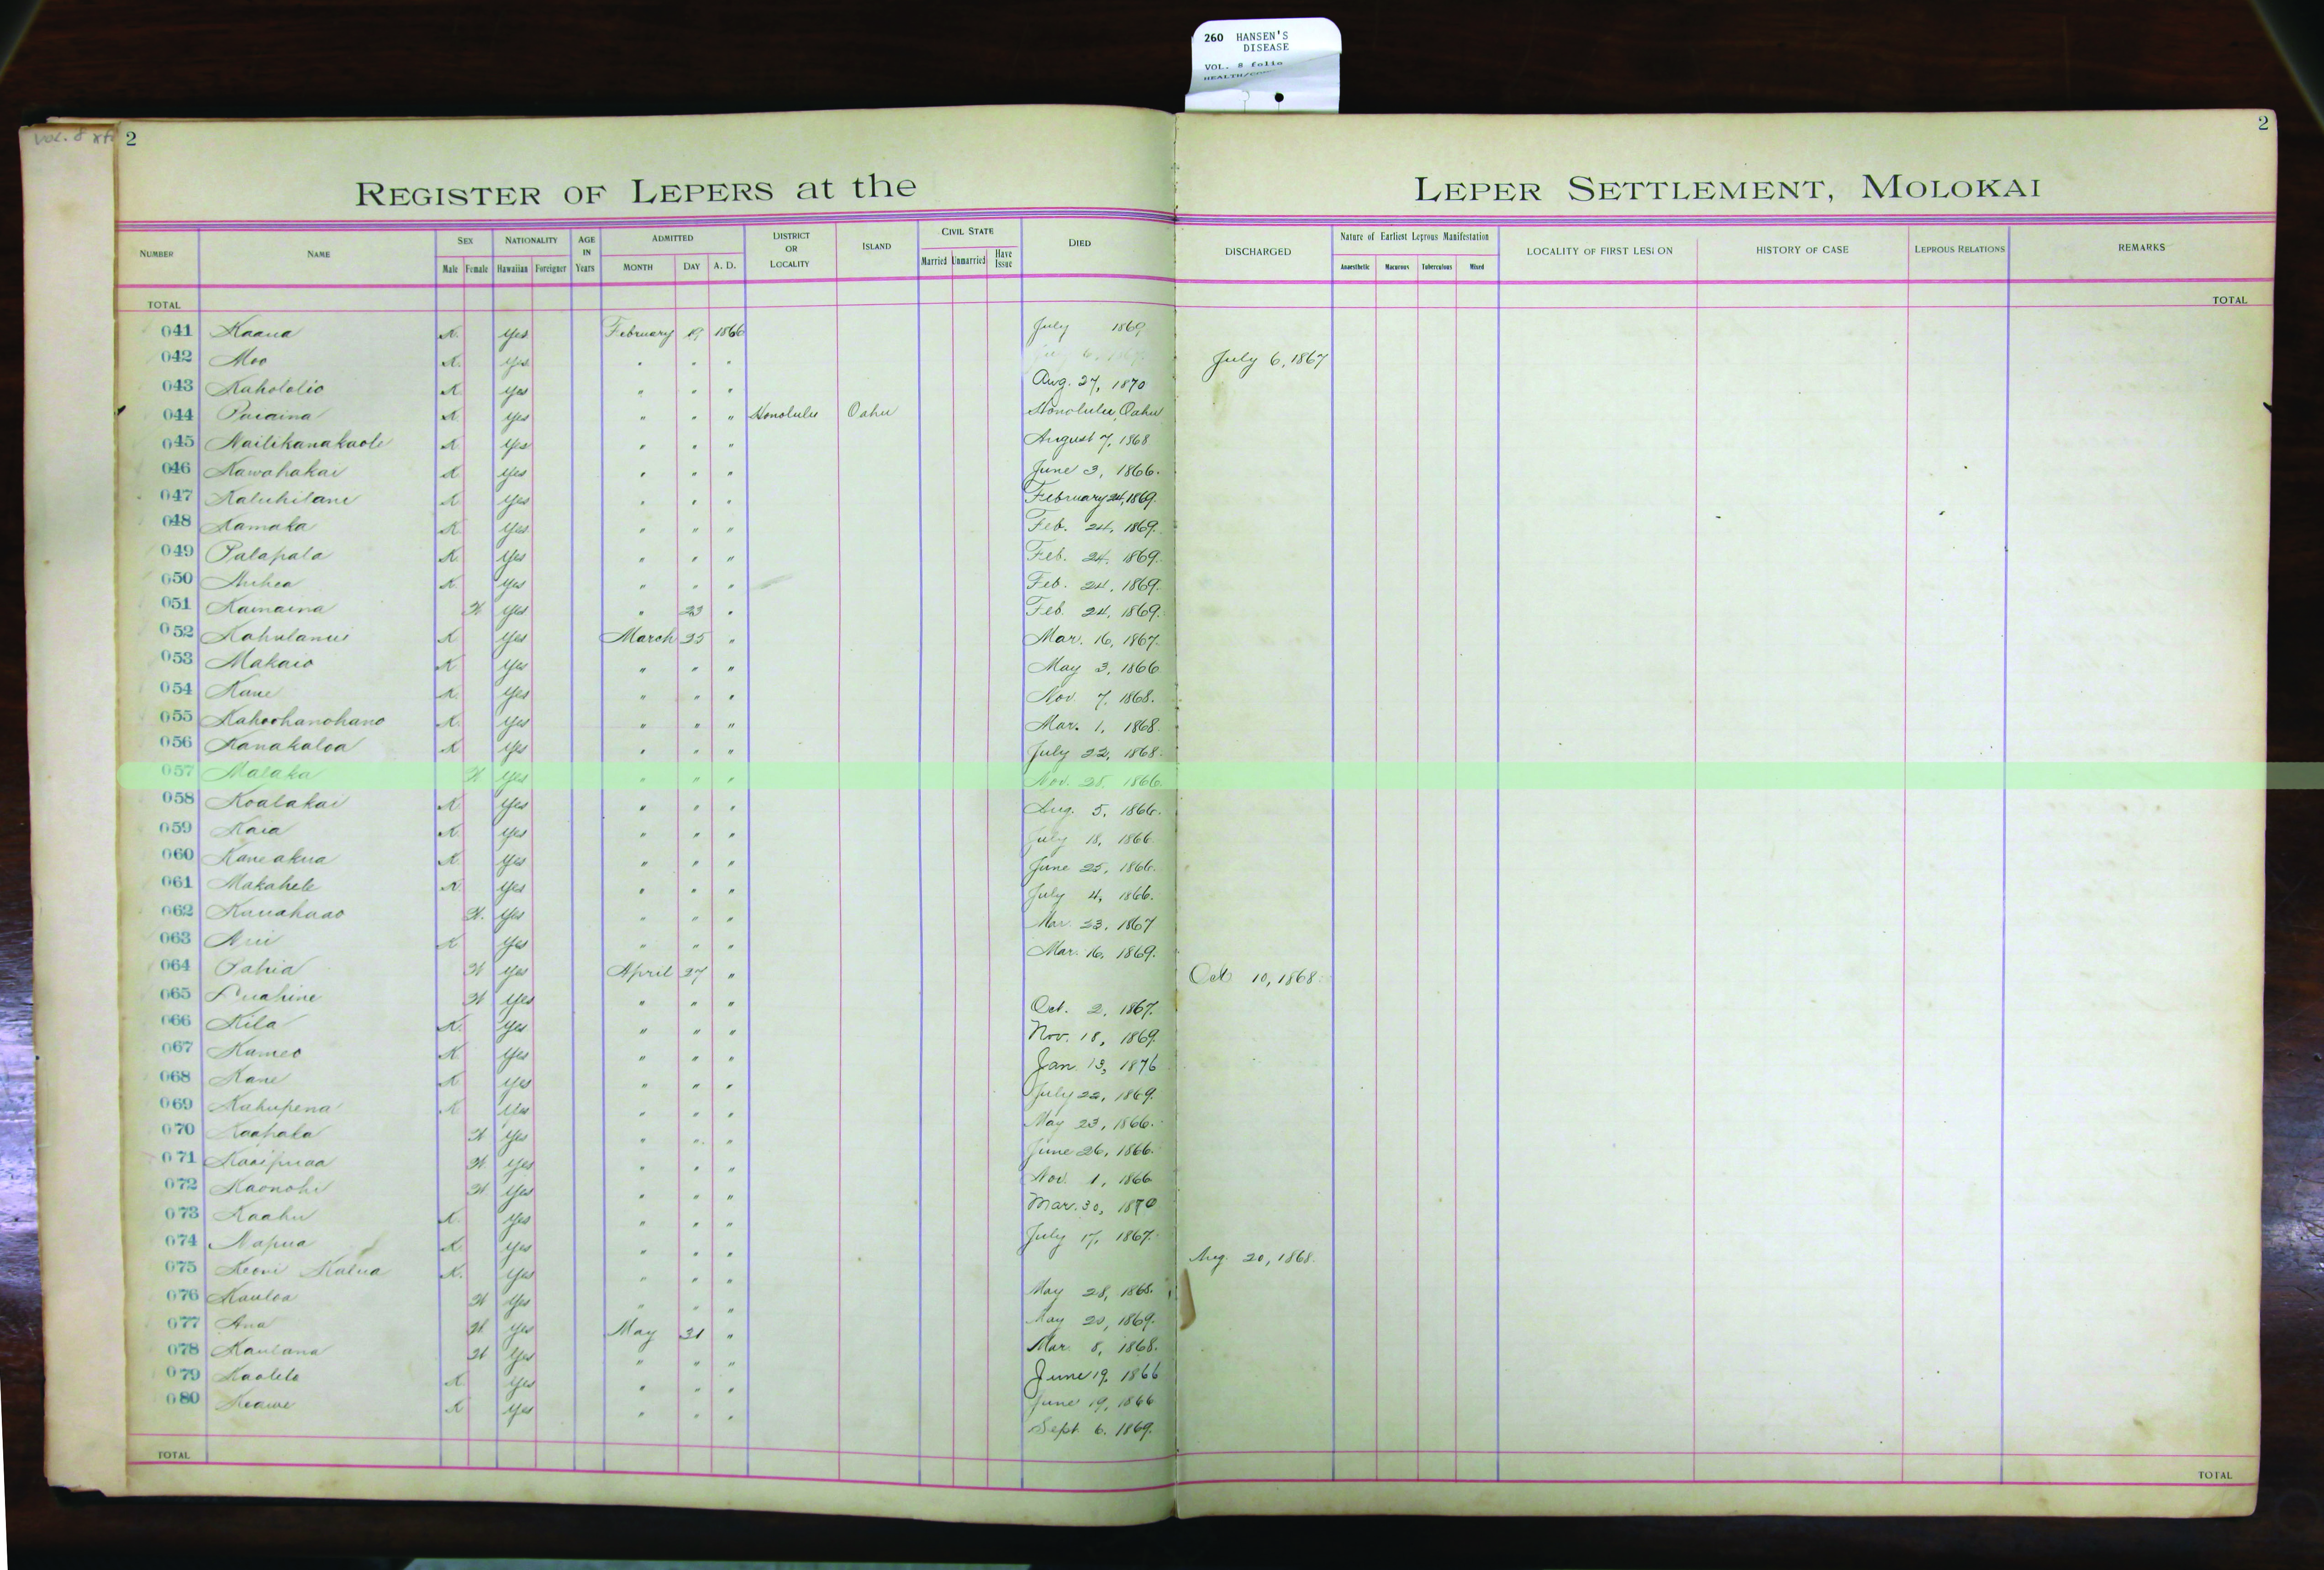 260 HANSEN'S
DISEASE
VOL. 8 folio
Vol. 8
2
2
REGISTER OF LEPERS at the LEPER SETTLEMENT, MOLOKAI
NUMBER NAME SEX NATIONALITY AGE IN Years ADMITTED DISTRICT OR LOCALITY ISLAND CIVIL STATE DIED DISCHARGED Nature of Earliest Leprous Manifestation LOCALITY OF FIRST LESION HISTORY OF CASE LEPROUS RELATIONS REMARKS
Male Female Hawaiian Foreigner MONTH DAY A. D. Married Unmarried Have Issue Anaesthetic Macurous Tuberculous Mixed
TOTAL TOTAL
041 Kaaua K. Yes February 19 1866 July 1869
042 Moo K. Yes " " " July 6, 1867
043 Kahololio K Yes " " " Aug. 27, 1870
044 K Yes " " " Honolulu Oahu Honolulu, Oahu
045 Nailikanakaole K Yes " " " August 7, 1868
046 Kawahakai K Yes " " " June 3, 1866.
047 Kaluhilani K Yes " " " February 24, 1869.
048 Kamaka K Yes " " " Feb. 24, 1869.
049 Palapala K Yes " " " Feb. 24, 1869.
050 Auhea K Yes " " " Feb. 24, 1869.
051 Kamaina W Yes " 23 " Feb. 24, 1869.
052 Kahulanui K Yes March 25 " Mar. 16, 1867.
053 Makaio K Yes " " " May 3, 1866
054 Kane K. Yes " " " Nov. 7, 1868.
055 Kahoohanohano K. Yes " " " Mar. 1, 1868.
056 Kanakaloa K Yes " " " July 22, 1868.
057 Malaka W Yes " " " Nov. 28 1866.
058 Koalakai K Yes " " " Aug. 5, 1866.
059 Kaia K Yes " " " July 18, 1866.
060 Kaneakua K Yes " " " June 25, 1866.
061 Makahele K Yes " " " July 4, 1866.
062 Kauahaao W. Yes " " " Mar. 23, 1867
063 K Yes " " " Mar. 16, 1869.
064 Pahia W Yes April 27 " Oct 10, 1868.
065 Luahine W Yes " " " Oct. 2, 1867.
066 Kila K. Yes " " " Nov. 18, 1869.
067 Kameo K Yes " " " Jan. 13, 1876
068 Kane K Yes " " " July 22, 1869.
069 Kahupena K Yes " " " May 23, 1866.
070 Kaahala W Yes " " " June 26, 1866.
071 Kaaipuaa W. Yes " " " Nov. 1, 1866
072 Kaonohi W Yes " " " Mar. 30, 1870
073 Kaahu K. Yes " " " July 17, 1867.
074 Napua K Yes " " " Aug. 20, 1868.
075 Keoni Kalua K. Yes " " " May 28, 1868.
076 Kauloa W Yes " " " May 20, 1869.
077 Ana W. Yes May 31 " Mar. 8, 1868.
078 Kaulana W Yes " " " June 19, 1866
079 Kaolelo K Yes " " " June 19, 1866
080 Keawe K Yes " " " Sept. 6, 1869.
TOTAL TOTAL